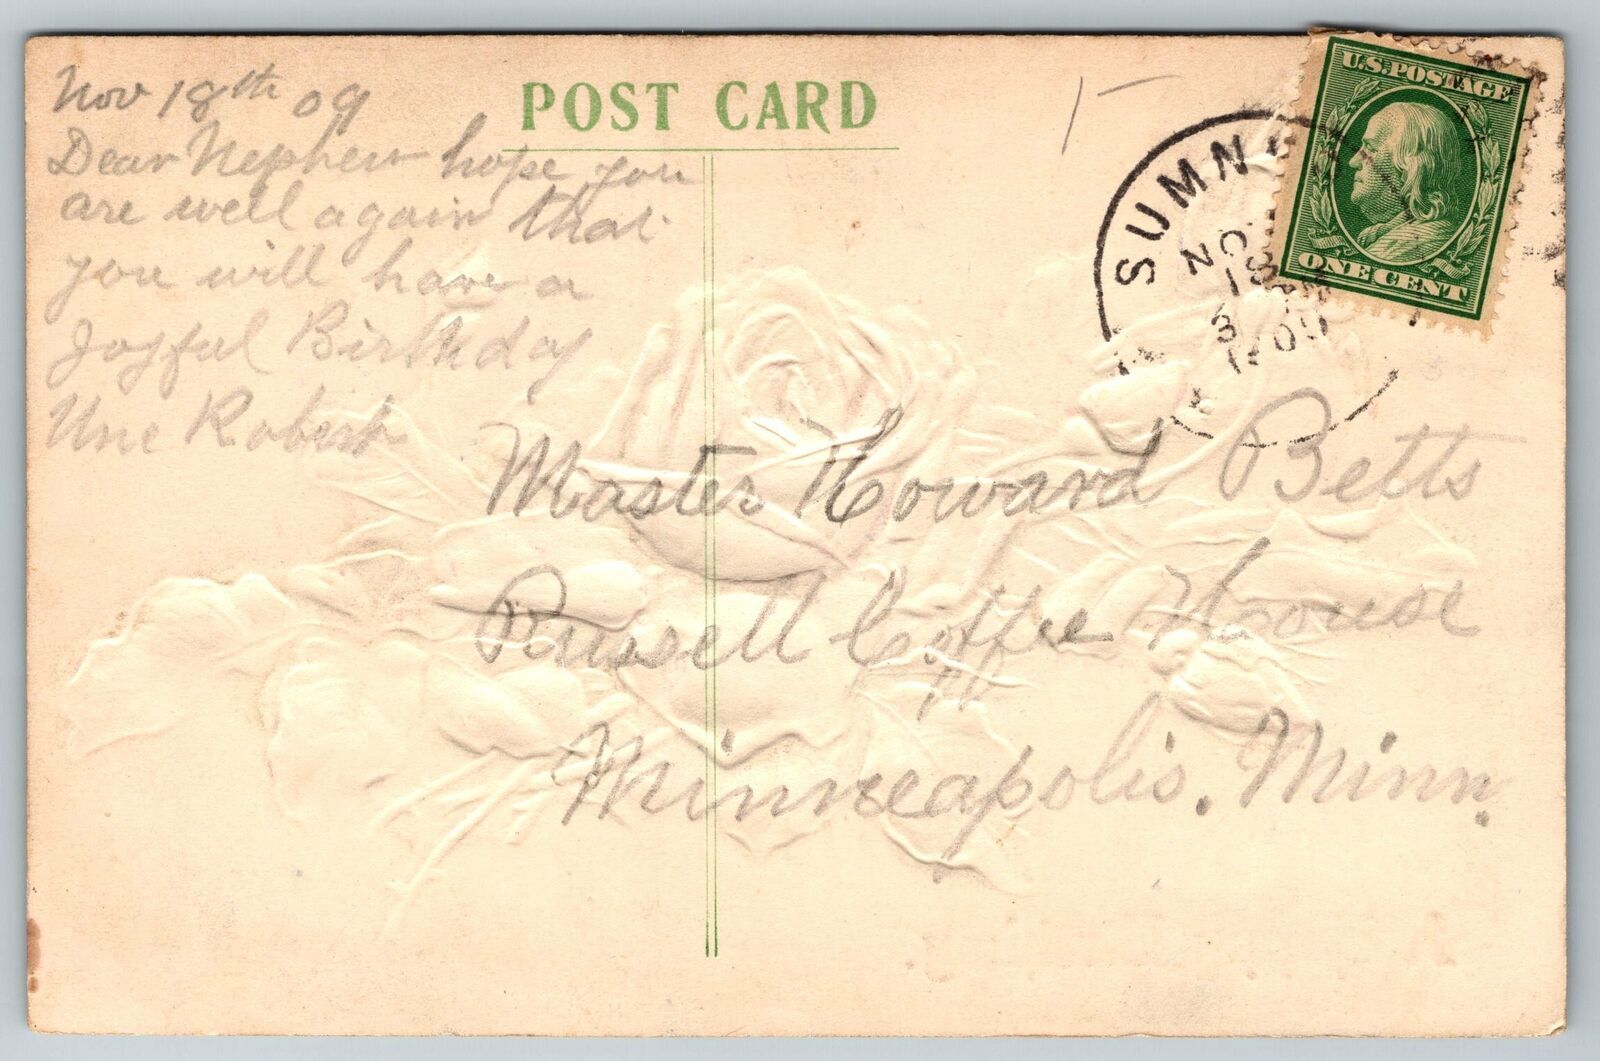 Nov 18th 09
Dear Nephew hope you
are well again that
you will have a
Joyful Birthday
Unc Robert
POST CARD
U.S. POSTAGE
ONE CENT
SUMN
NO
18
3
1909
Master Howard Betts
Russell Coffee House
Minneapolis. Minn.